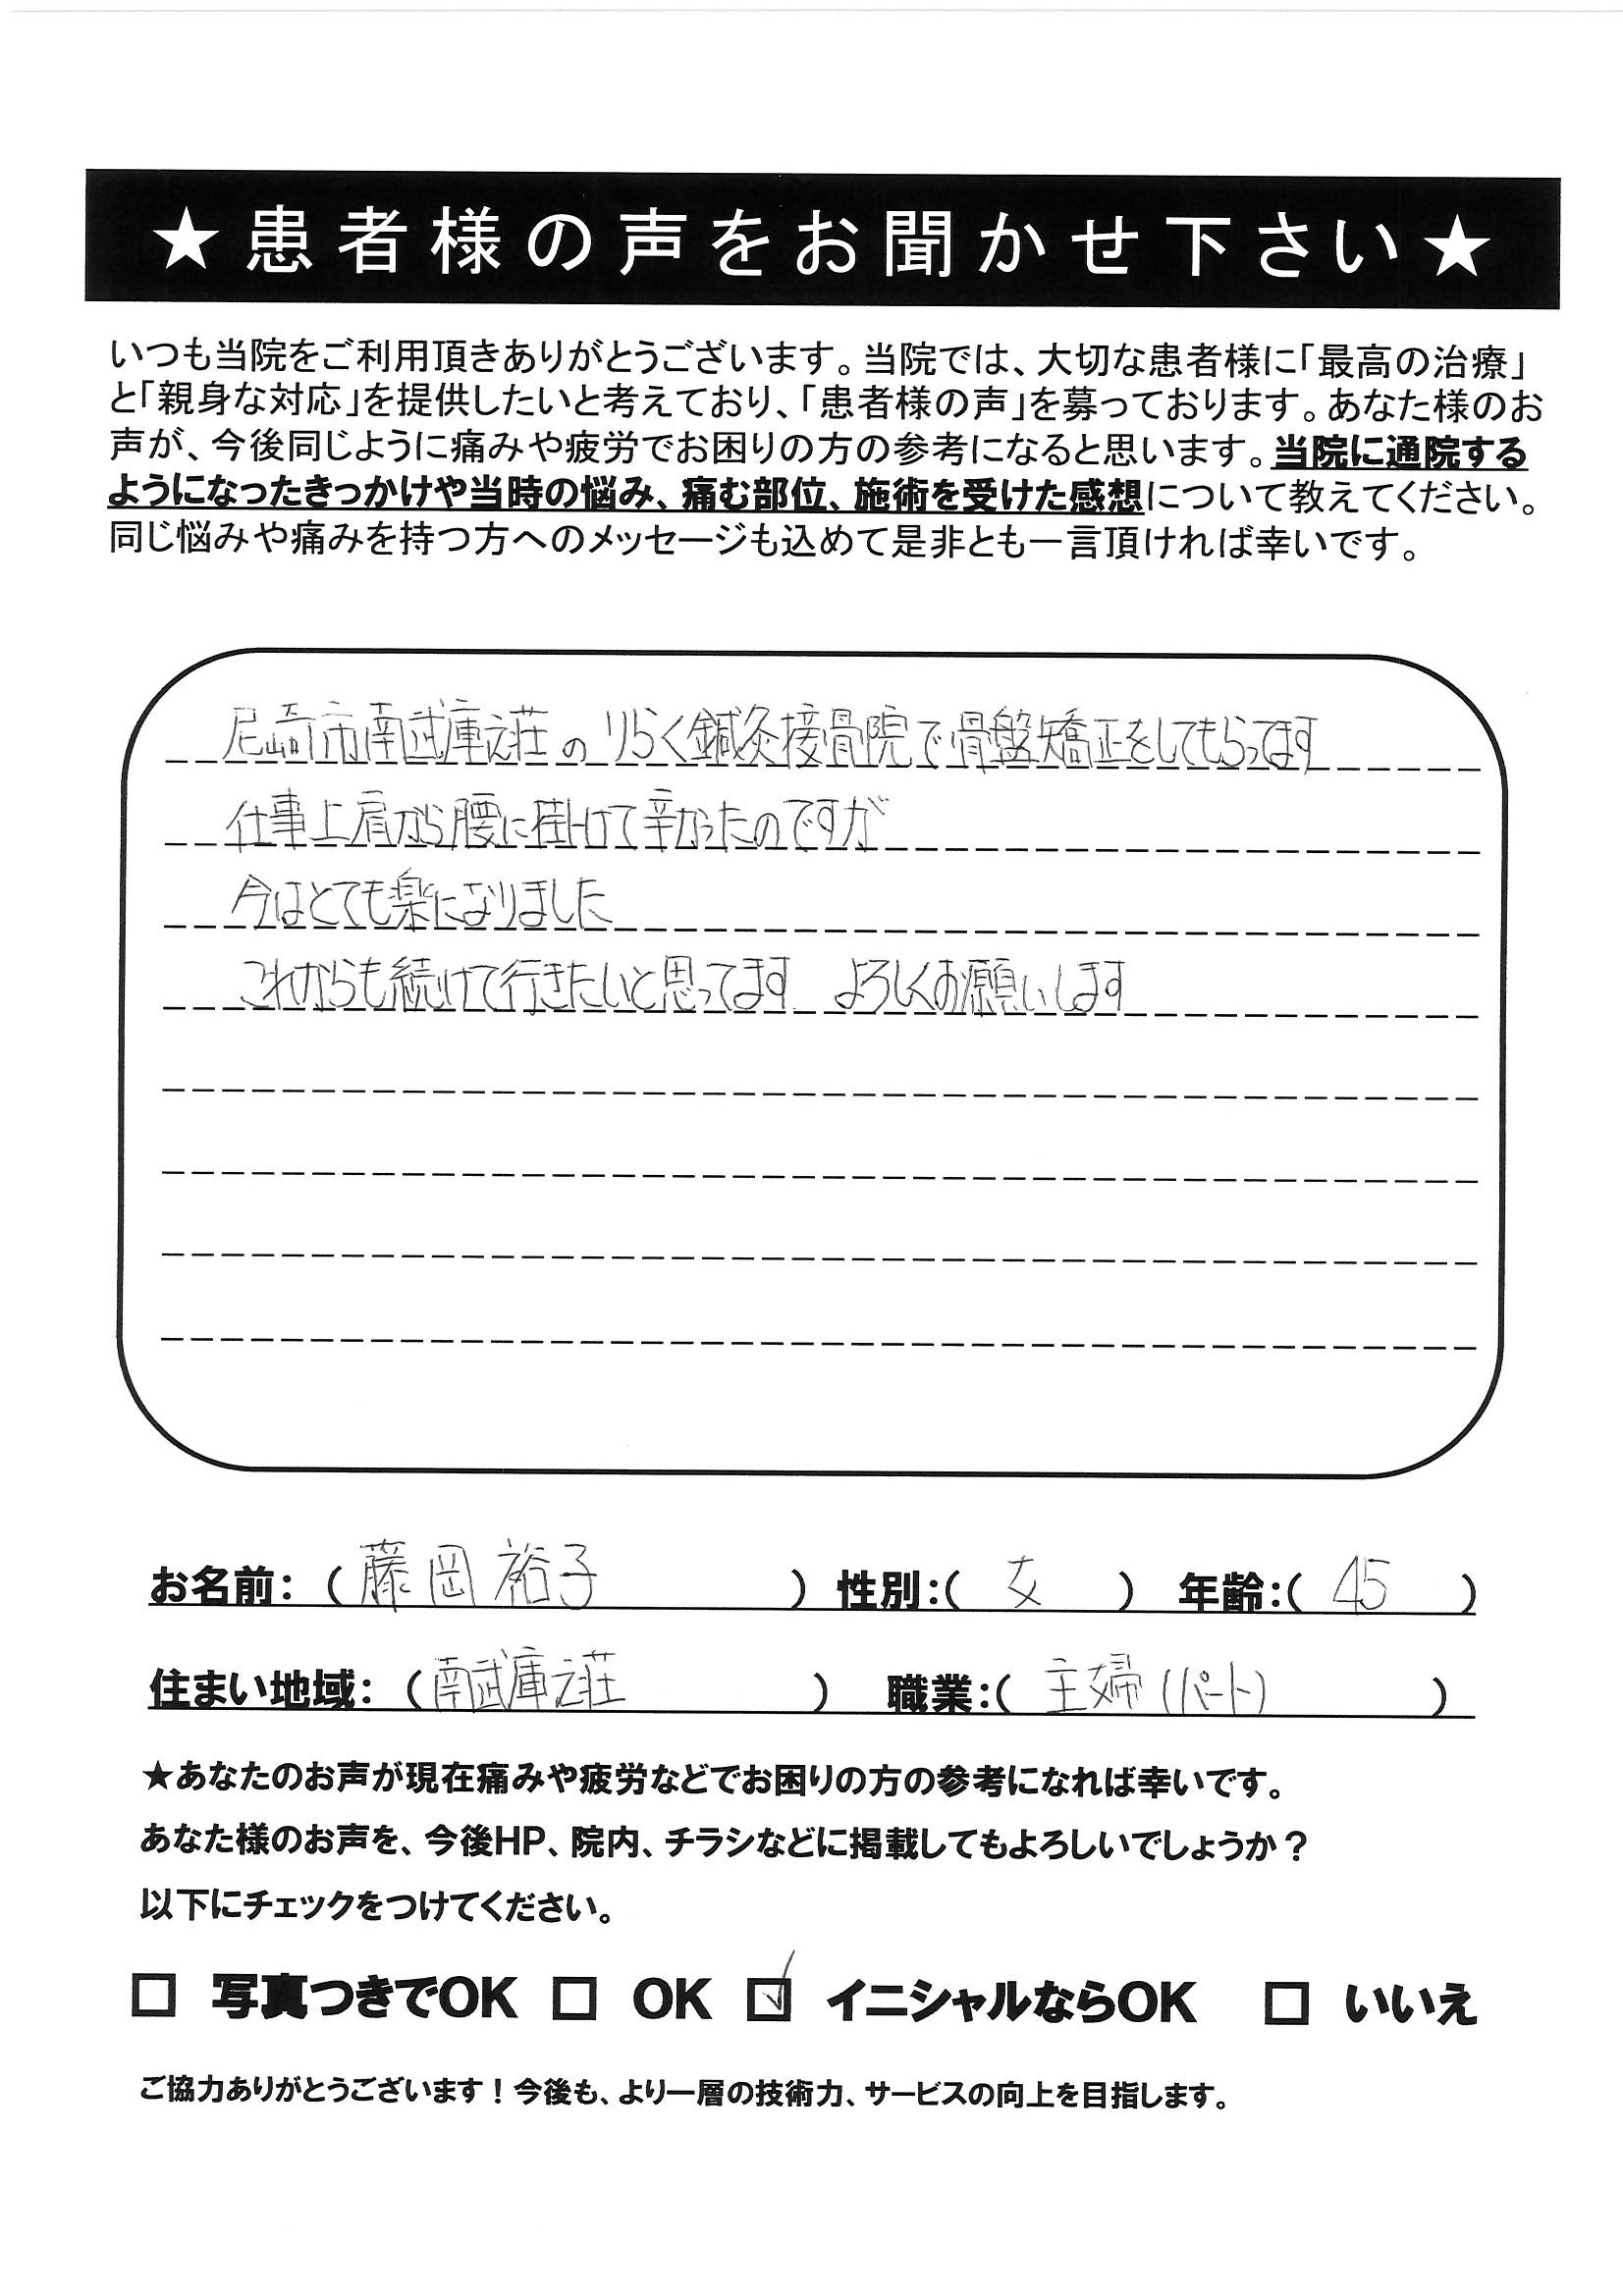 ★患者様の声をお聞かせ下さい★
いつも当院をご利用頂きありがとうございます。当院では、大切な患者様に「最高の治療」
と「親身な対応」を提供したいと考えており、「患者様の声」を募っております。あなた様のお
声が、今後同じように痛みや疲労でお困りの方の参考になると思います。当院に通院する
ようになったきっかけや当時の悩み、痛む部位、施術を受けた感想について教えてください。
同じ悩みや痛みを持つ方へのメッセージも込めて是非とも一言頂ければ幸いです。
尼崎市南武庫之荘のりらく鍼灸接骨院で骨盤矯正をしてもらってます
仕事上肩から腰に掛けて辛かったのですが
今はとても楽になりました
これからも続けて行きたいと思ってます よろしくお願いします
お名前：（藤岡 裕子）性別：（女）年齢：（45）
住まい地域：（南武庫之荘）職業：（主婦（パート））
★あなたのお声が現在痛みや疲労などでお困りの方の参考になれば幸いです。
あなた様のお声を、今後HP、院内、チラシなどに掲載してもよろしいでしょうか？
以下にチェックをつけてください。
□ 写真つきでOK □ OK ☑ イニシャルならOK □ いいえ
ご協力ありがとうございます！今後も、より一層の技術力、サービスの向上を目指します。